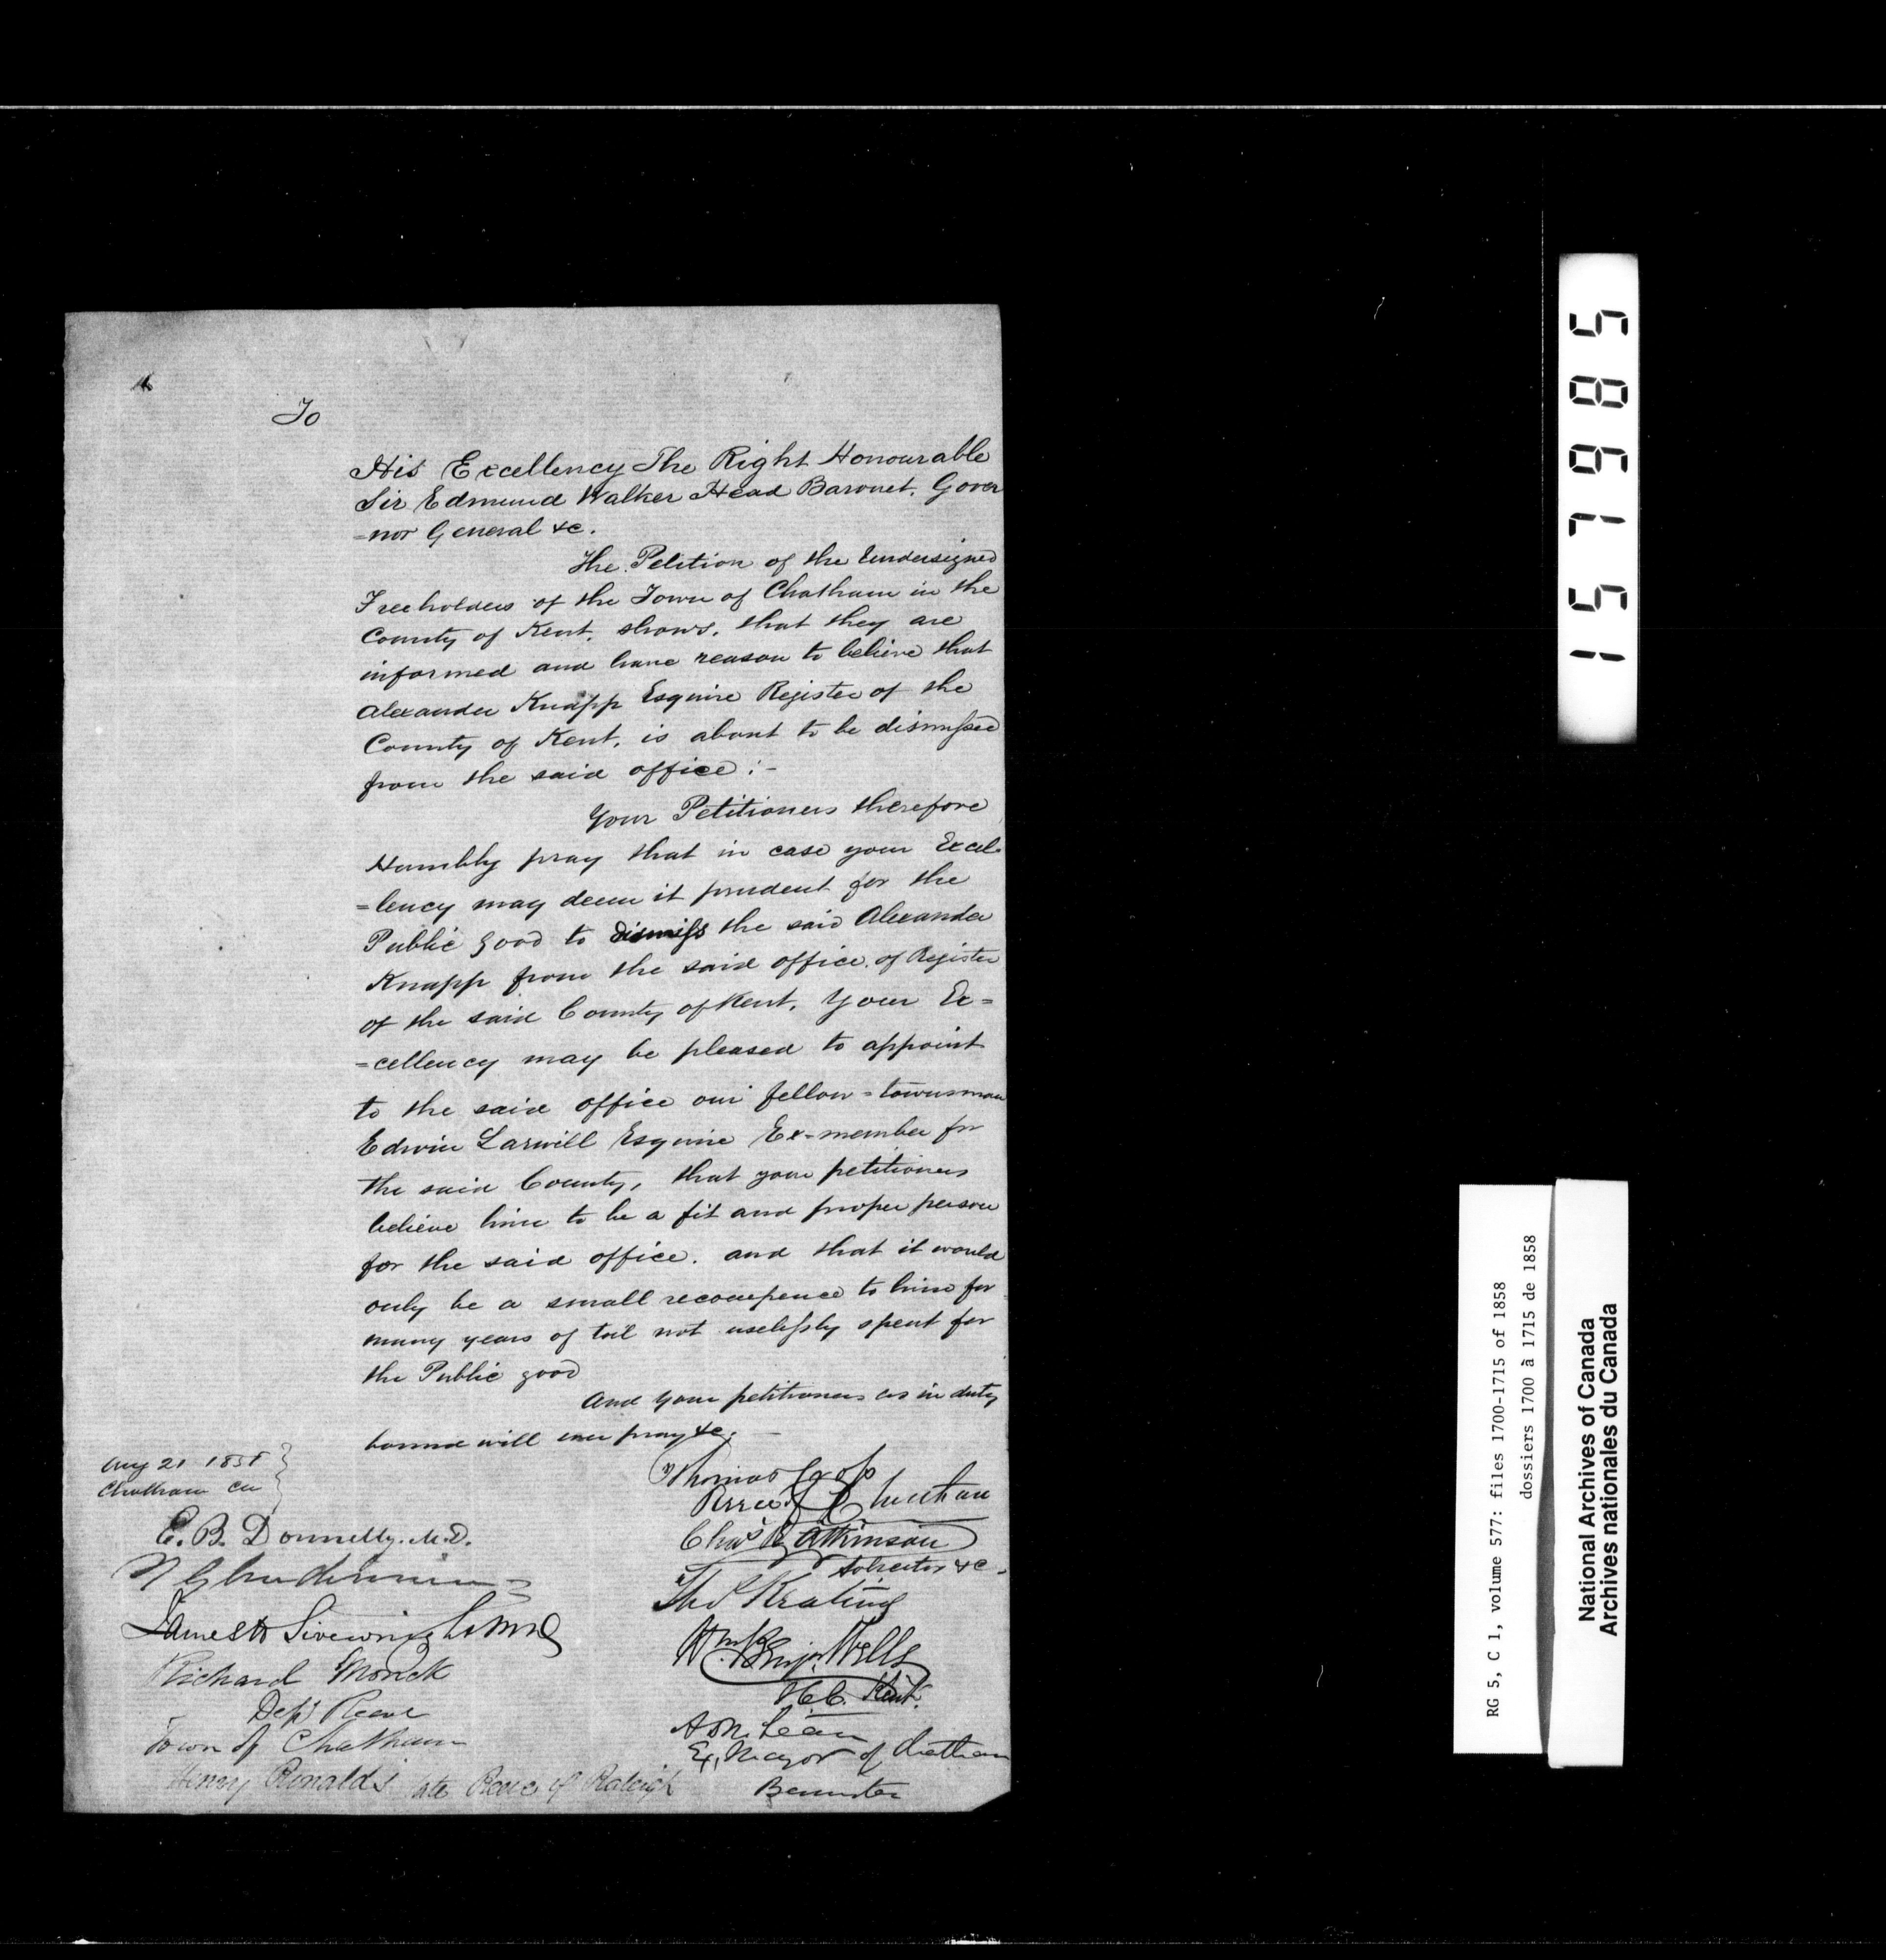 To
His Excellency The Right Honourable
Sir Edmund Walker Head Baronet, Gover
=nor General &c.
The Petition of the Undersigned
Freeholders of the Town of Chatham in the
County of Kent, shows, that they are
informed and have reason to believe that
Alexander Knapp Esquire Register of the
County of Kent, is about to be dismissed
from the said office :-
Your Petitioners therefore
Humbly pray that in case your Excel
=lency may deem it prudent for the
Public good to dismiss the said Alexander
Knapp from the said office, of Register
of the said County of Kent, Your Ex=
=cellency may be pleased to appoint
to the said office our fellow=townsman
Edwin Larwill Esquire Ex=member for
the said County, that your petitioners
believe him to be a fit and proper person
for the said office. and that it would
only be a small recompence to him for
many years of toil not uselessly spent for
the Public good
And your petitioners as in duty
bound will ever pray &c.
Aug 21 1858
Chatham CW
Thomas
Reeve of Chatham
E. B. Donnelly. M.D.
Chas R Atkinson
Solicitor &c.
Thos Keating
James Sivewright
Wm Benj. Wells
Richard Monck
Kent.
Dep Reeve
Town of Chatham
Ex, Mayor of Chatham
Henry Ronalds late Reeve of Raleigh
Barrister
157985
RG 5, C 1, volume 577: files 1700-1715 of 1858
dossiers 1700 à 1715 de 1858
National Archives of Canada
Archives nationales du Canada